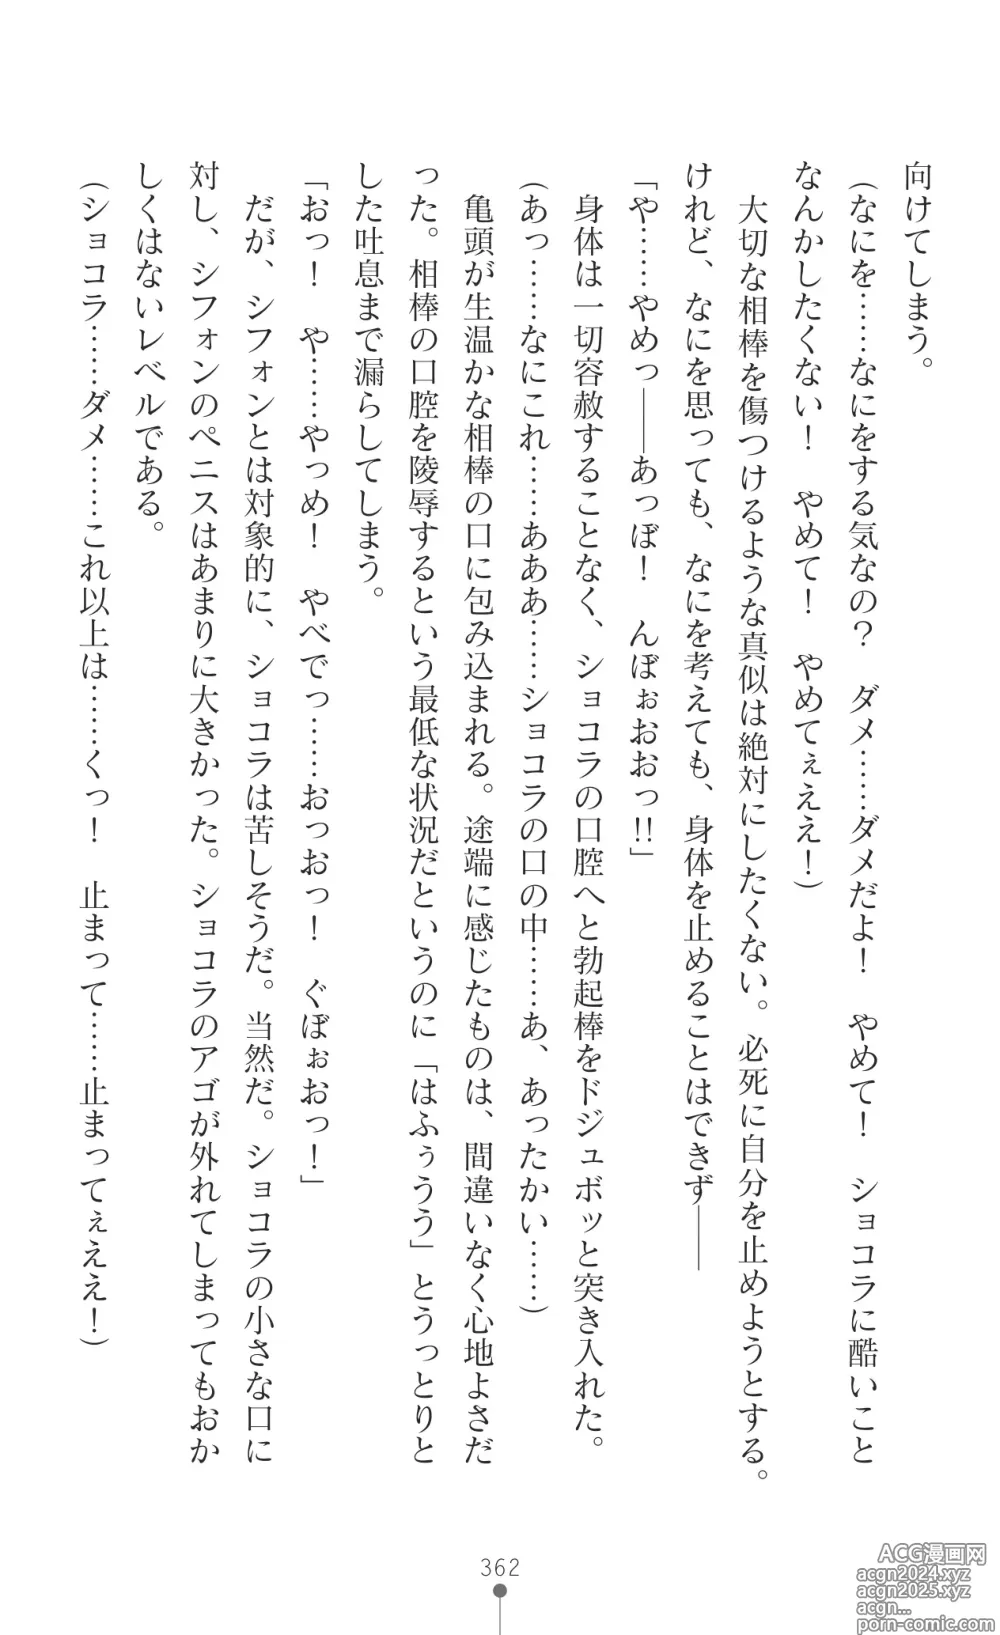 向けてしまう。
（なにを……なにをする気なの？　ダメ……ダメだよ！　やめて！　ショコラに酷いこと
なんかしたくない！　やめて！　やめてぇええ！）
　大切な相棒を傷つけるような真似は絶対にしたくない。必死に自分を止めようとする。
けれど、なにを思っても、なにを考えても、身体を止めることはできず――
「や……やめっ――あっぼ！　んぼぉおおっ!!」
　身体は一切容赦することなく、ショコラの口腔へと勃起棒をドジュボッと突き入れた。
（あっ……なにこれ……あああ……ショコラの口の中……あ、あったかい……）
　亀頭が生温かな相棒の口に包み込まれる。途端に感じたものは、間違いなく心地よさだ
った。相棒の口腔を陵辱するという最低な状況だというのに「はふぅうう」とうっとりと
した吐息まで漏らしてしまう。
「おっ！　や……やっめ！　やべでっ……おっおっ！　ぐぼぉおっ！」
　だが、シフォンとは対象的に、ショコラは苦しそうだ。当然だ。ショコラの小さな口に
対し、シフォンのペニスはあまりに大きかった。ショコラのアゴが外れてしまってもおか
しくはないレベルである。
（ショコラ……ダメ……これ以上は……くっ！　止まって……止まってぇええ！）
362
ACG漫画网
acgn2024.xyz
acgn2025.xyz
acgn...
porn-comic.com